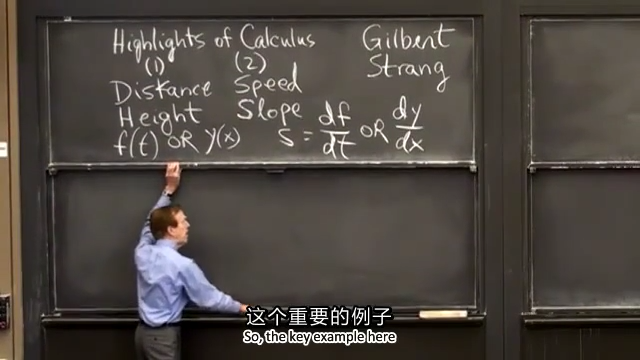 Highlights of Calculus
Gilbert
Strang
(1) (2)
Distance Speed
Height Slope
f(t) OR y(x) s = df/dt OR dy/dx
这个重要的例子
So, the key example here